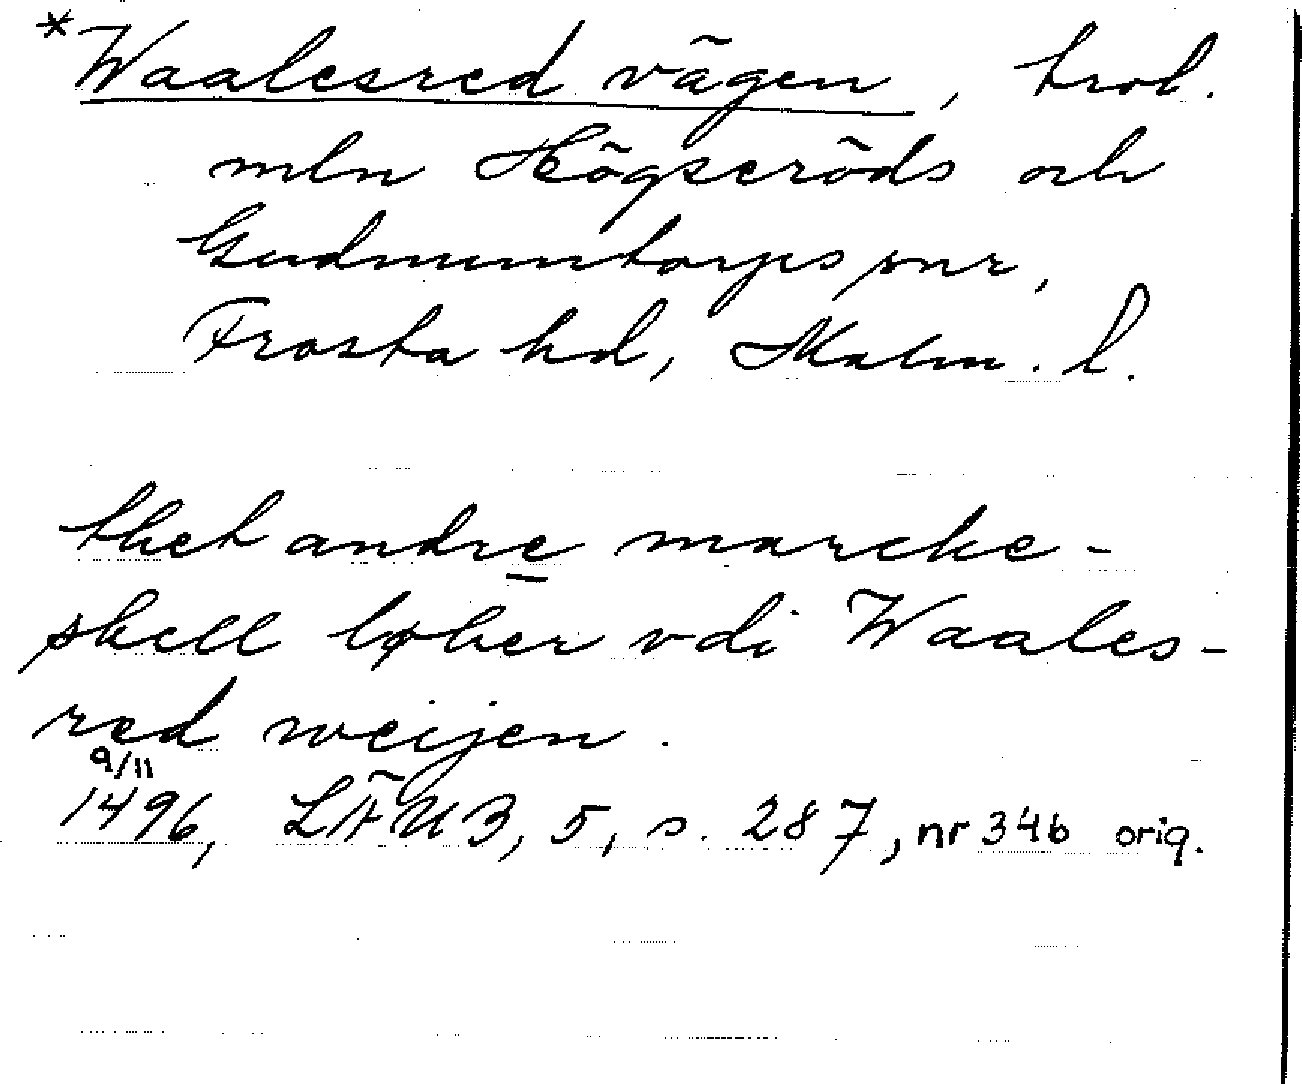 *Waalesred vägen, trol.
mln Högseröds och
Gudmuntorps snr,
Frosta hd, Malm. l.
thet andre marcke-
skell løber vdi Waales-
red weijen.
9/11
1496, LÄUB, 5, s. 287, nr 346 orig.